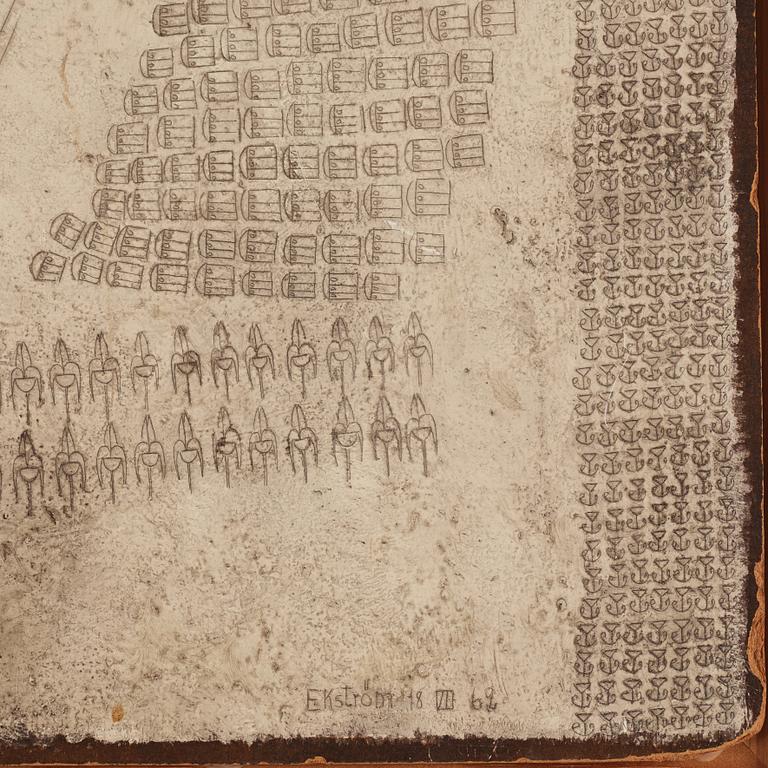 Ekström 18 VII 62